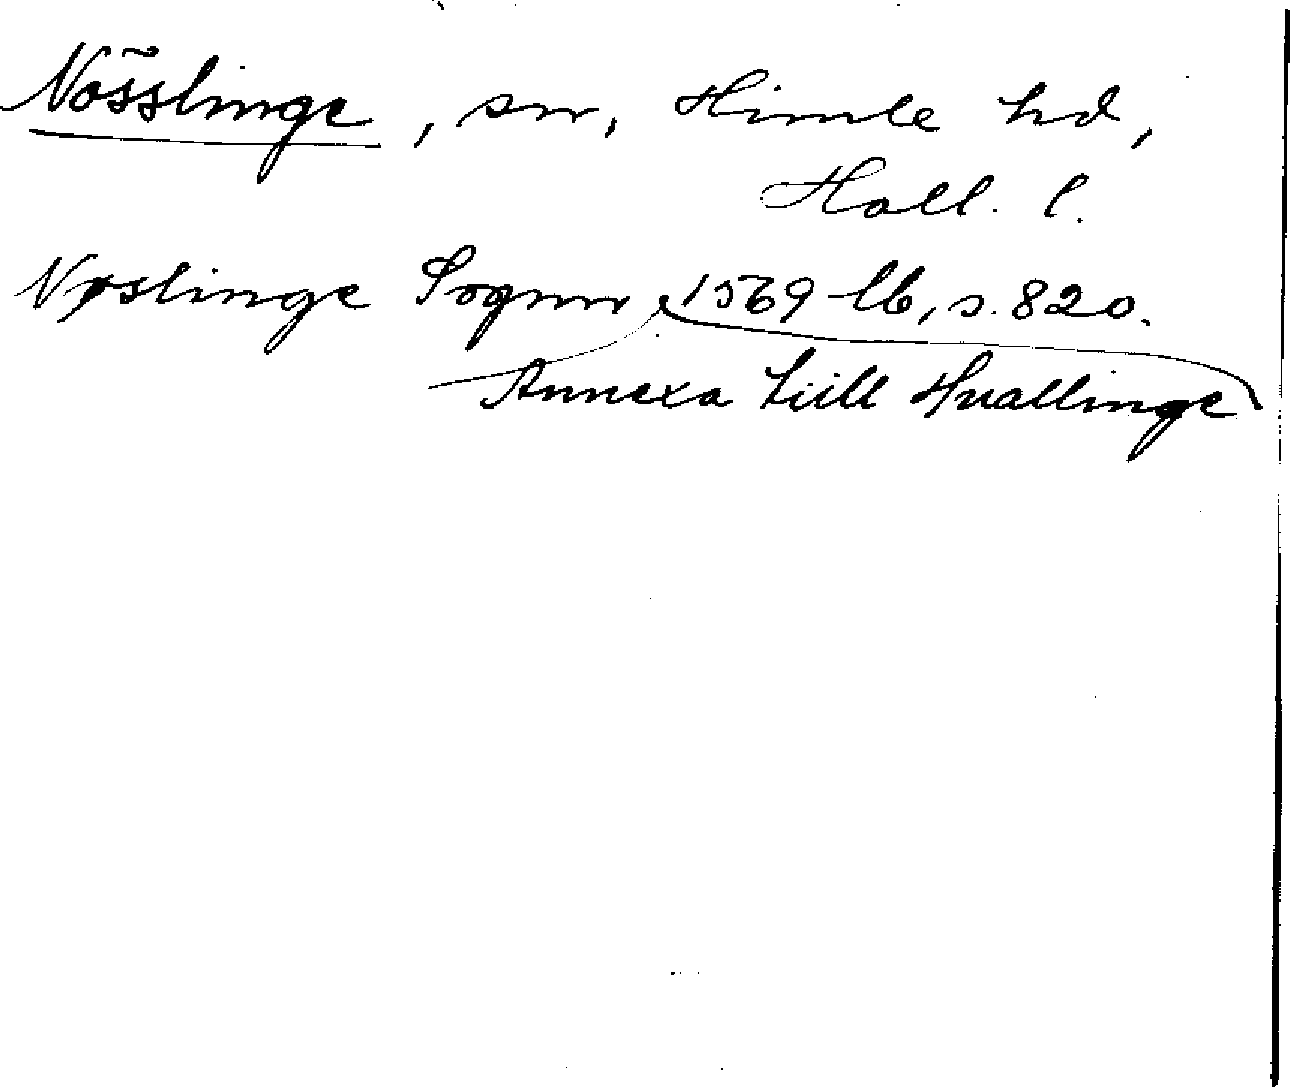 Nösslinge, sn, Himle hd,
Hall. l.
Nøslinge Sognn 1569 lb, s. 820.
Annexa tiill Huallinge